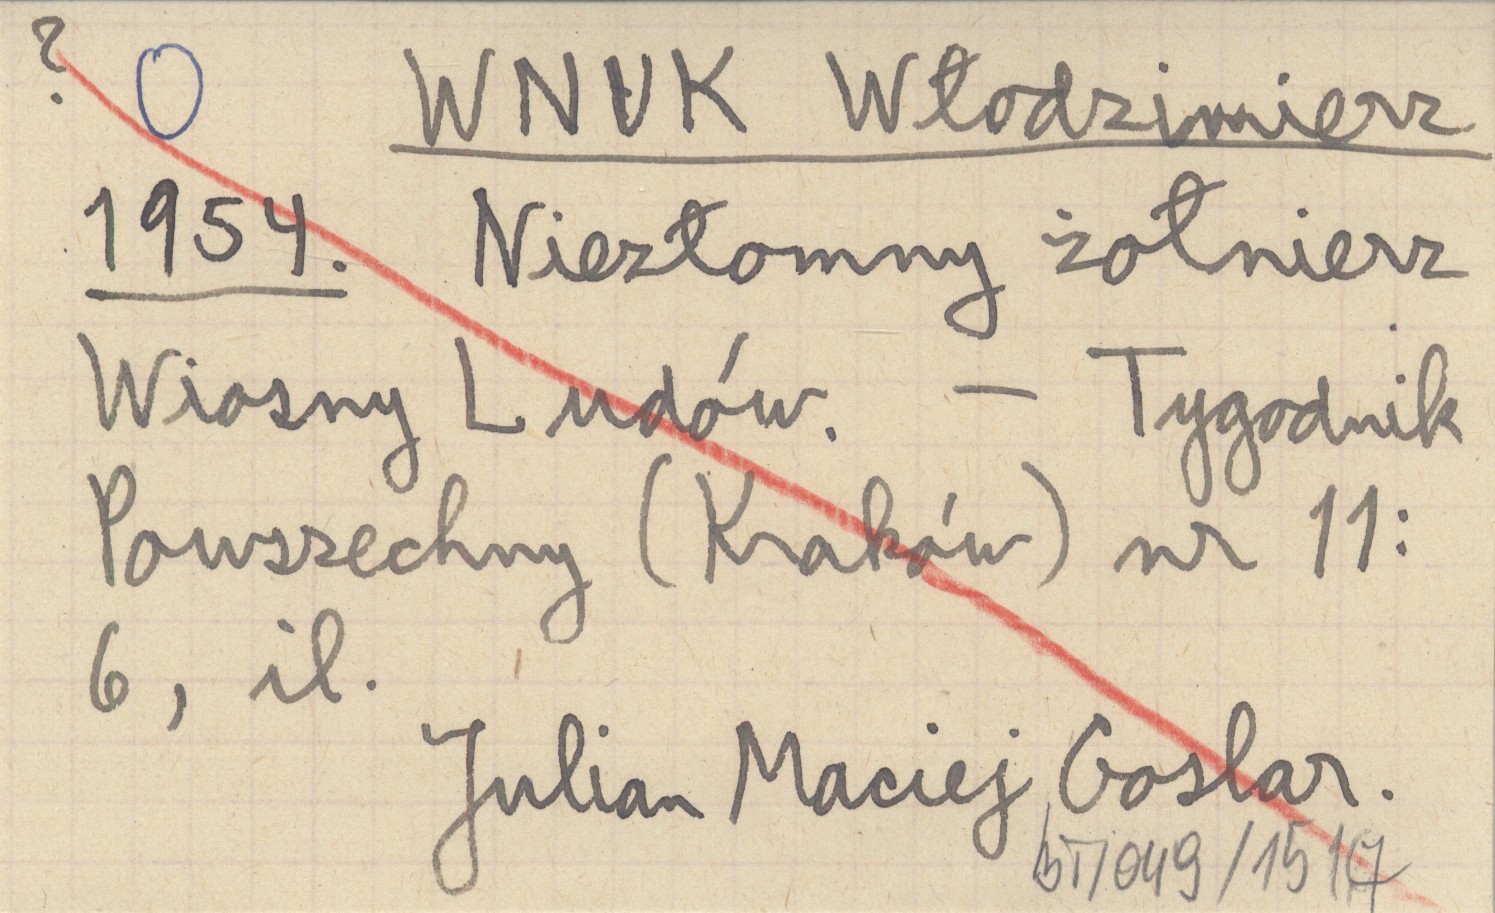 ? O WNUK Włodzimierz
1954. Niezłomny żołnierz
Wiosny Ludów. — Tygodnik
Powszechny (Kraków) nr 11:
6, il.
Julian Maciej Goslar.
BT/049/1517